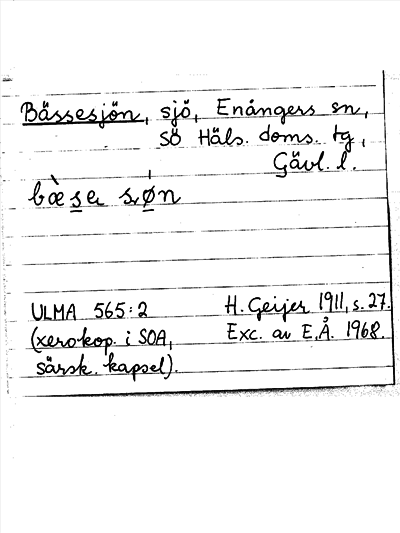 Bässesjön, sjö, Enångers sn,
SÖ Häls. doms. tg,
Gävl. l.
bæ̀sɐ sø̍n
ULMA 565:2
(xerokop. i SOA,
särsk. kapsel).
H. Geijer 1911, s. 27.
Exc. av E.Å. 1968.